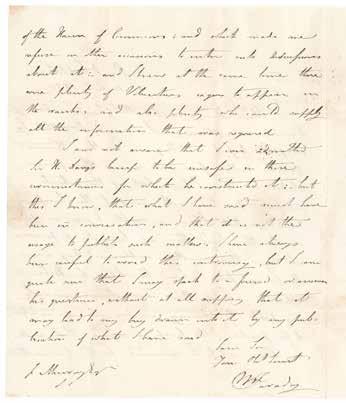 of the House of Commons: and which made me
refuse on other occasions to enter into discussions
about it: and I knew at the same time there
were plenty of Volunteers eager to appear in
the matter and also plenty who could supply
all the information that was required
I am not aware that I ever
Sir H. Davy's lamp to be unsafe in those
circumstances for which he constructed it: but
this I know, that what I have said must have
been in conversation, and that it is not the
usage to publish such matters. I have always
been careful to avoid this controversy, but I am
quite sure that I may speak to a friend or answer
his questions, without at all supposing that it
may lead to my being drawn into it by any pub-
lication of what I have said
I am Sir
Your Obt Servt
M Faraday
J. Murray Esq